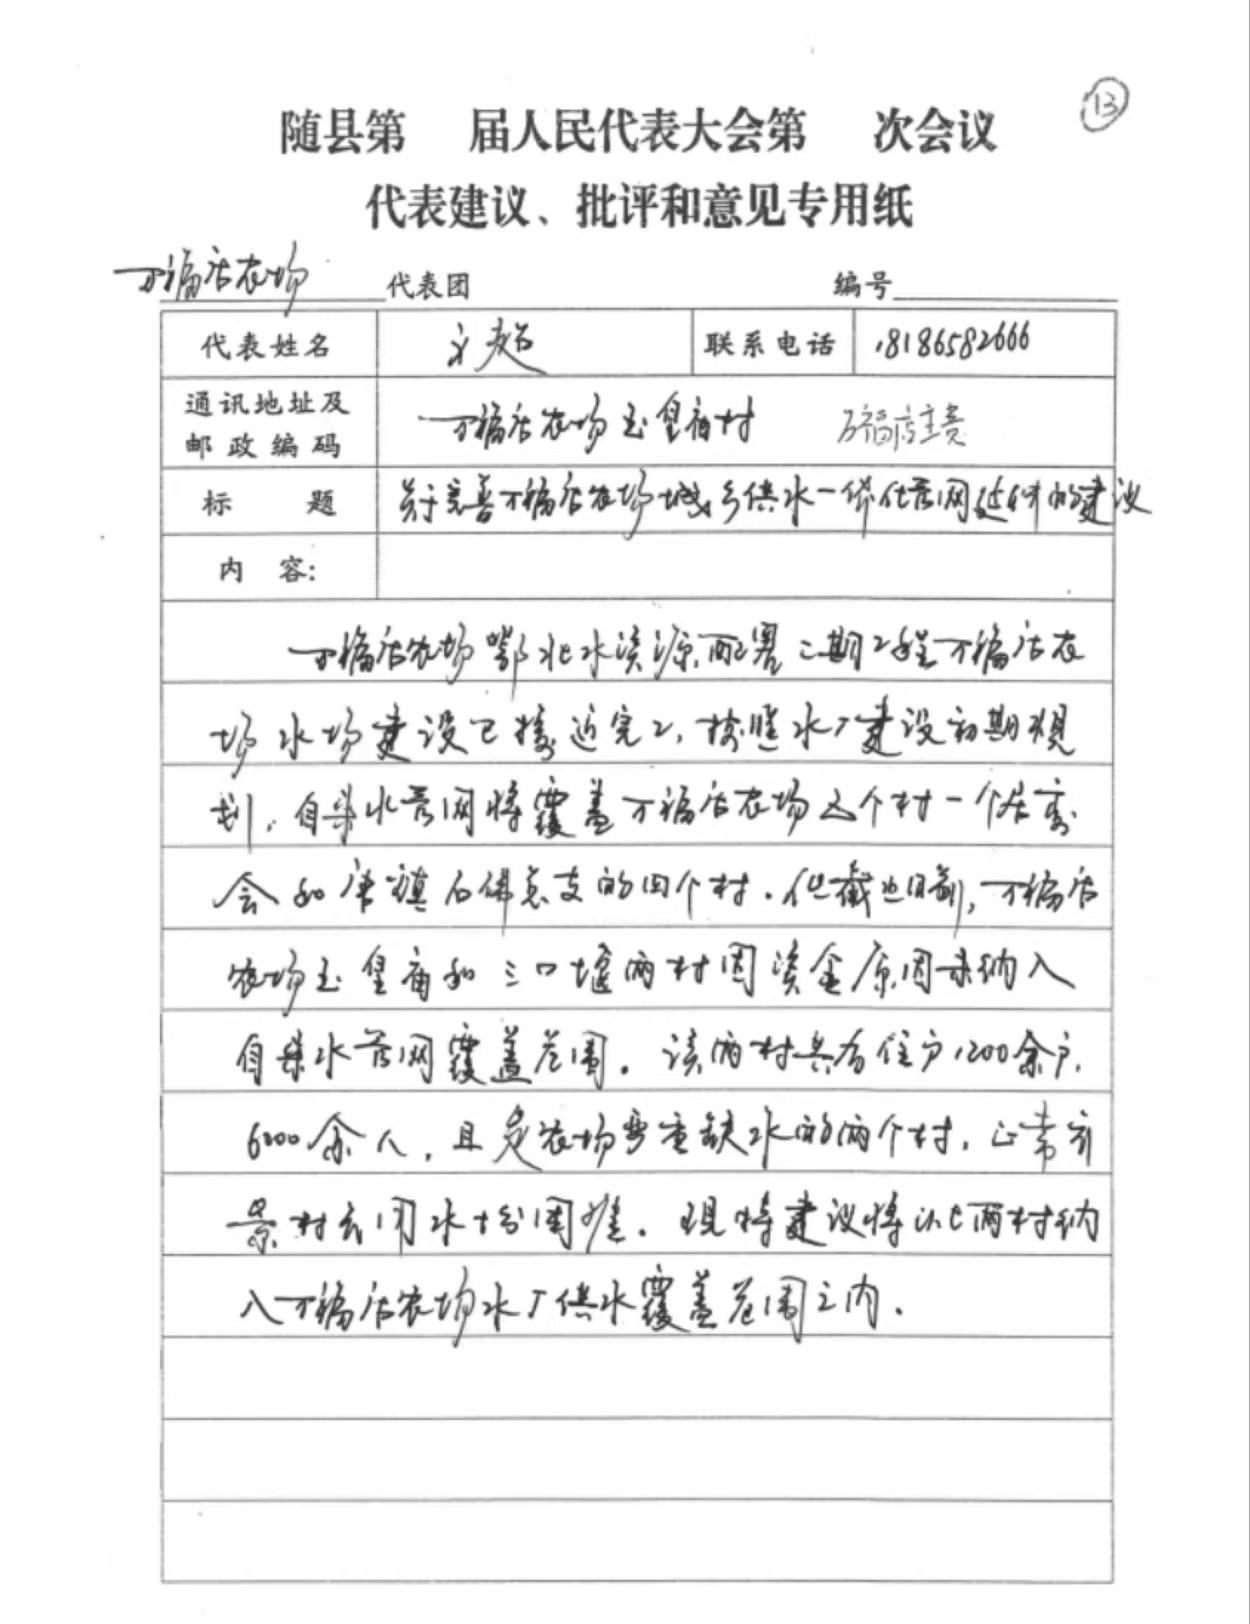 13
随县第 届人民代表大会第 次会议
代表建议、批评和意见专用纸
万福店农场 代表团 编号
代表姓名 超 联系电话 18186582666
通讯地址及
邮政编码
万福店农场玉皇庙村 万福店主责
标 题 关于完善万福店农场城乡供水一体化管网延伸的建议
内 容:
万福店农场鄂北水资源配置二期工程万福店农
场水场建设已接近完工,按照水厂建设初期规
划,自来水管网将覆盖万福店农场五个村一个居委
会和唐镇石佛总支的四个村。但截止目前,万福店
农场玉皇庙和三口堰两村因资金原因未纳入
自来水管网覆盖范围。该两村共有住户1200余户,
6000余人,且是农场严重缺水的两个村,正常
景村民用水十分困难。现特建议将此两村纳
入万福店农场水厂供水覆盖范围之内。